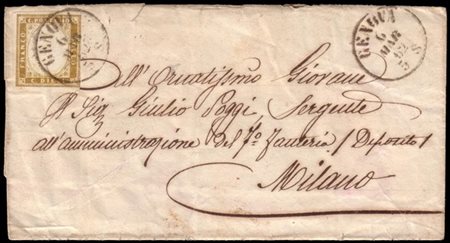 GENOVA
6
MAR
GENOVA
6
MAR
62
5 S
FRANCO
C. POSTE
C. DIECI
All'Ornatissimo Giovane
Il Sig Giulio Poggi, Sergente
all'amministrazione del 7º Fanteria / Deposito /
Milano